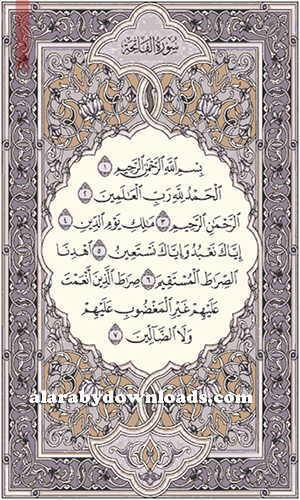 سُورَةُ الفَاتِحَةِ
بِسْمِ اللَّهِ الرَّحْمَٰنِ الرَّحِيمِ ١
الْحَمْدُ لِلَّهِ رَبِّ الْعَالَمِينَ ٢
الرَّحْمَٰنِ الرَّحِيمِ ٣ مَالِكِ يَوْمِ الدِّينِ ٤
إِيَّاكَ نَعْبُدُ وَإِيَّاكَ نَسْتَعِينُ ٥ اهْدِنَا
الصِّرَاطَ الْمُسْتَقِيمَ ٦ صِرَاطَ الَّذِينَ أَنْعَمْتَ
عَلَيْهِمْ غَيْرِ الْمَغْضُوبِ عَلَيْهِمْ
وَلَا الضَّالِّينَ ٧
alarabydownloads.com